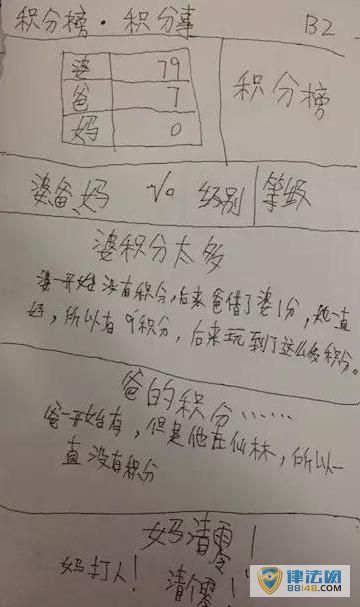 积分榜·积分事 B2
婆 79
爸 7
妈 0
积分榜
婆爸妈 级别 等级
婆积分太多
婆一开始没有积分,后来爸借了婆1分,她一直
好,所以有 积分,后来玩到了这么多积分。
爸的积分……
爸一开始有,但是他在仙林,所以一
直没有积分
妈清零!
妈打人! 清零!
律法网
88148.com